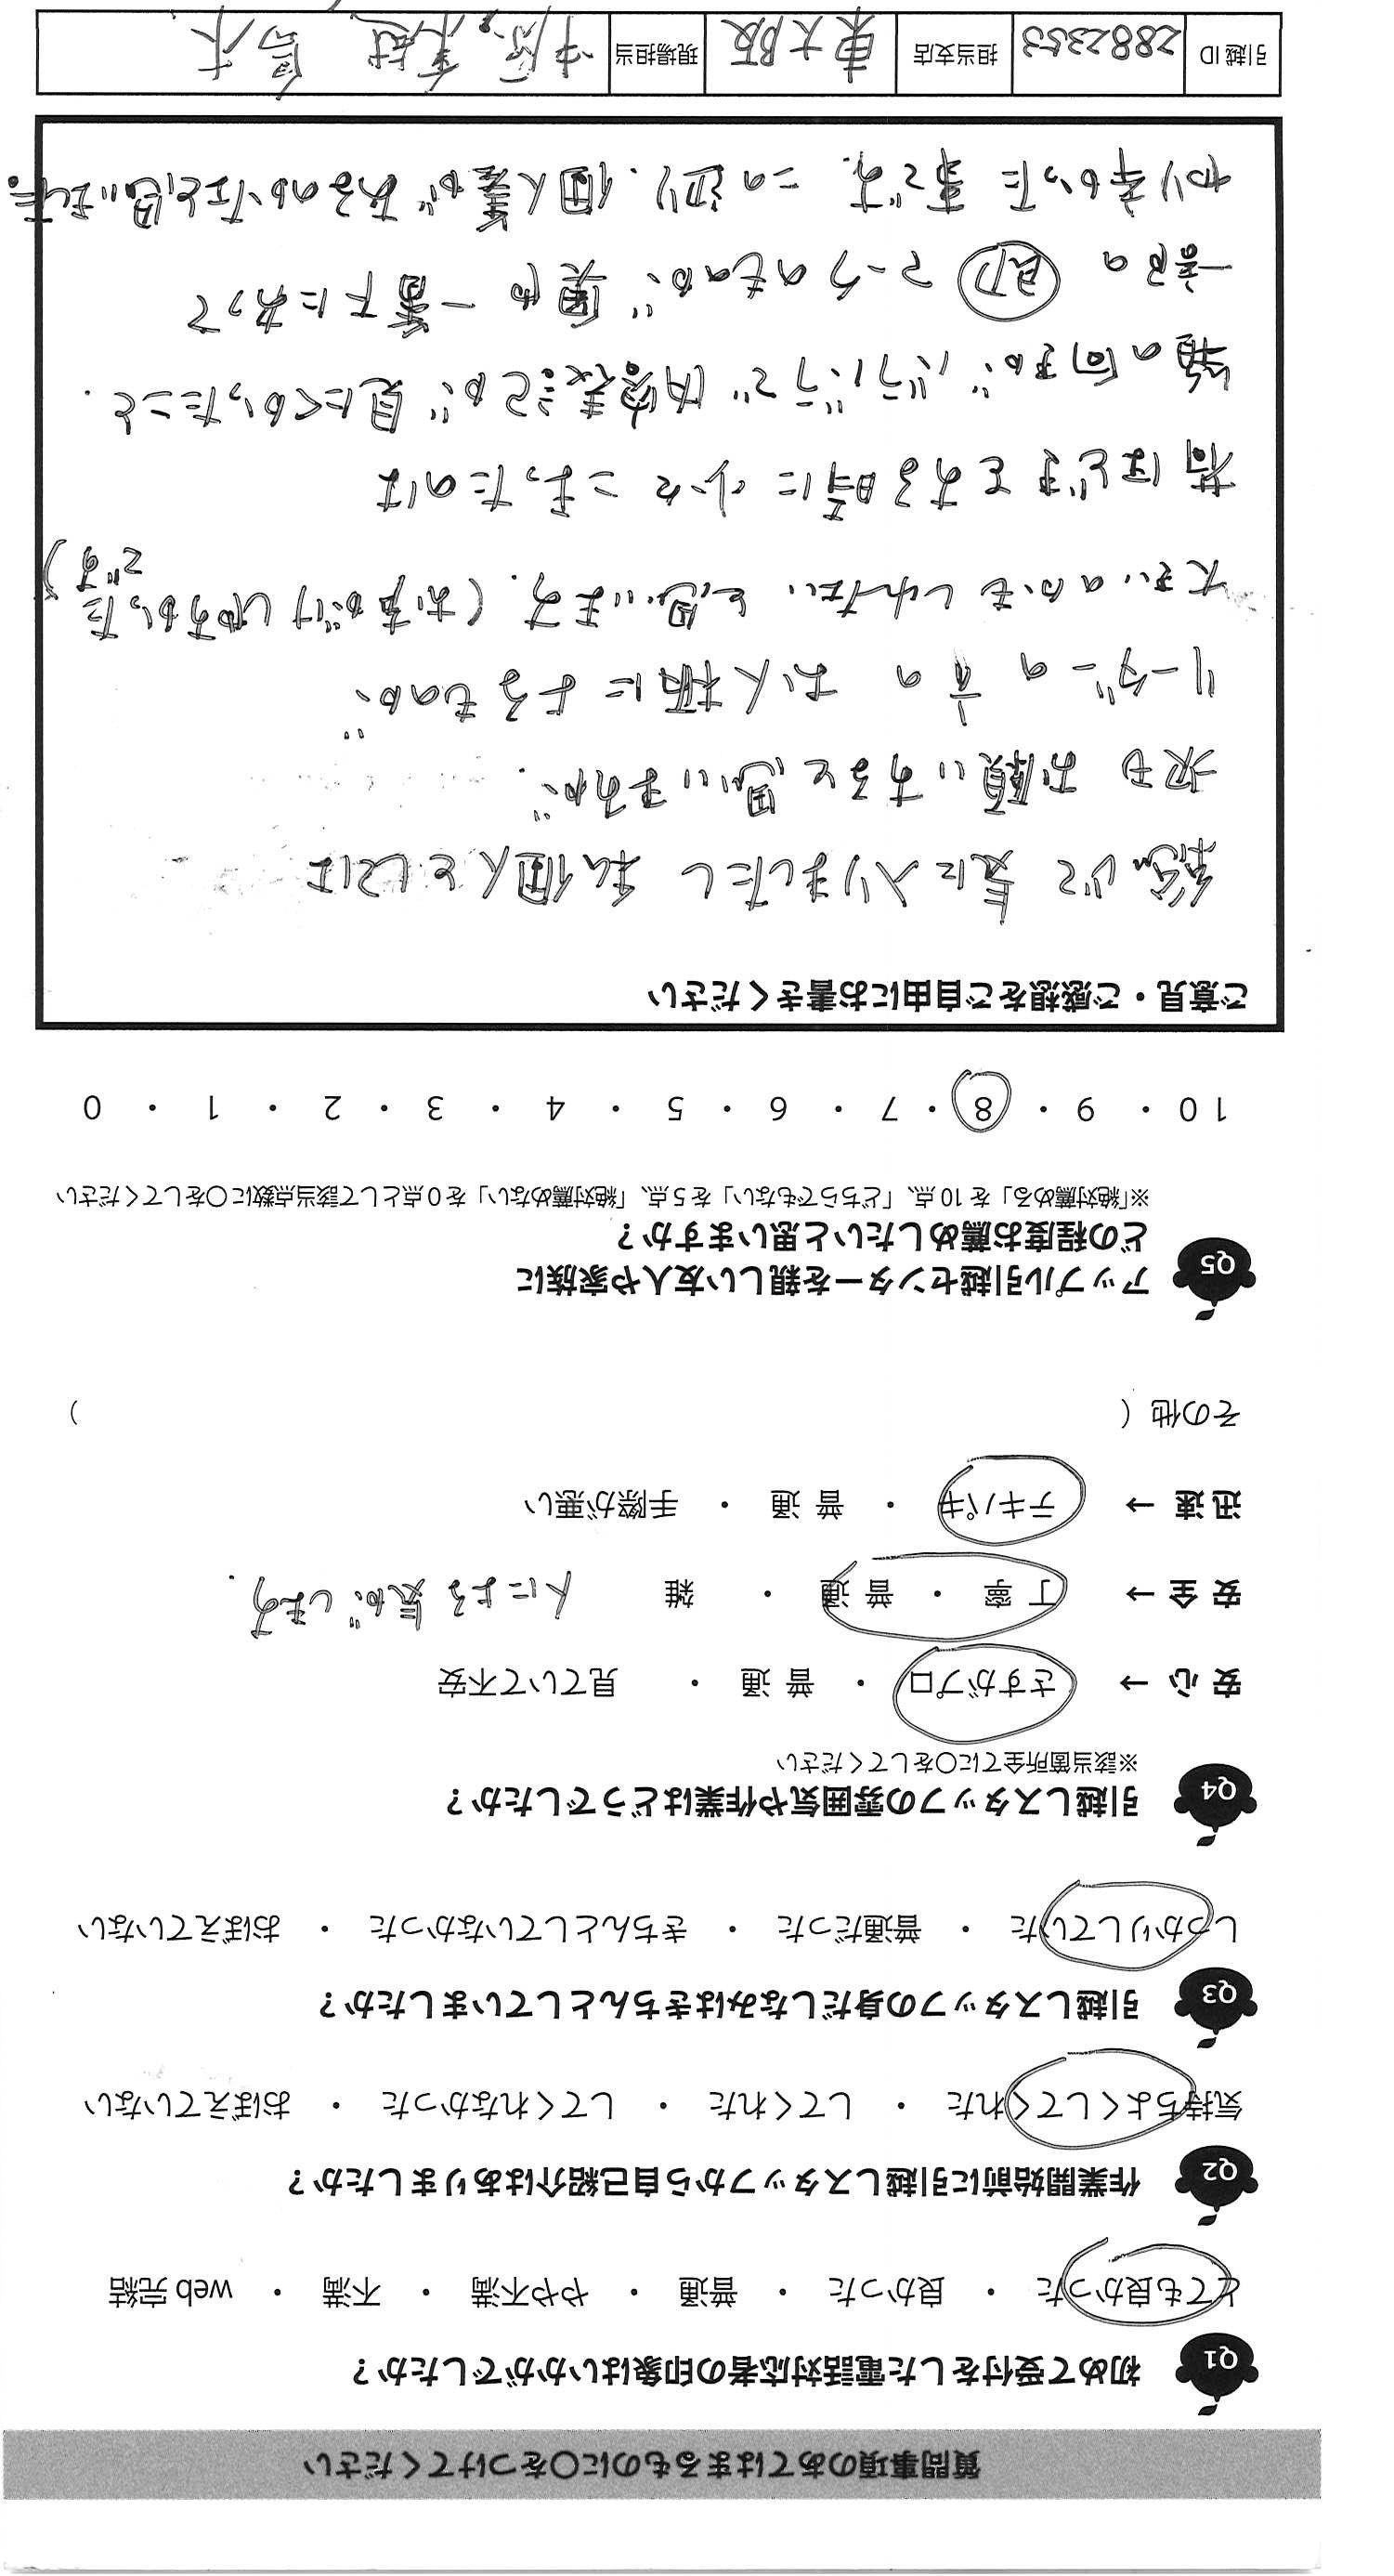 質問事項のあてはまるものに〇をつけてください
Q1 初めて受付をした電話対応者の印象はいかがでしたか？
とても良かった ・ 良かった ・ 普通 ・ やや不満 ・ 不満 ・ web 完結
Q2 作業開始前に引越しスタッフから自己紹介はありましたか？
気持ちよくしてくれた ・ してくれた ・ してくれなかった ・ おぼえていない
Q3 引越しスタッフの身だしなみはきちんとしていましたか？
しっかりしていた ・ 普通だった ・ きちんとしていなかった ・ おぼえていない
Q4 引越しスタッフの雰囲気や作業はどうでしたか？
※該当箇所全てに〇をしてください
安 心 → さすがプロ ・ 普 通 ・ 見ていて不安
安 全 → 丁 寧 ・ 普 通 ・ 雑 人による気がします.
迅 速 → テキパキ ・ 普 通 ・ 手際が悪い
その他（ ）
Q5 アップル引越センターを親しい友人や家族に
どの程度お薦めしたいと思いますか？
※「絶対薦める」を 10 点、「どちらでもない」を 5 点、「絶対薦めない」を 0 点として該当点数に〇をしてください
10 ・ 9 ・ 8 ・ 7 ・ 6 ・ 5 ・ 4 ・ 3 ・ 2 ・ 1 ・ 0
ご意見・ご感想をご自由にお書きください
総じて 気に入りましたし 私個人としては
次も お願いすると思いますが、
リーダーの方の お人柄によるものが
大きいのかもしれない と思います.（お声がけしやすかった
です）
荷ほどきをする時に 少々こまったのは
箱の向きが バラバラで 内容表記が 見にくかったこと.
一部の 即 マークのものが 奥や 一番下にあって
わり辛かった 事です. この辺り、個人差が あるのかなと思いました。
引越 ID 2882353 担当支店 東大阪 現場担当